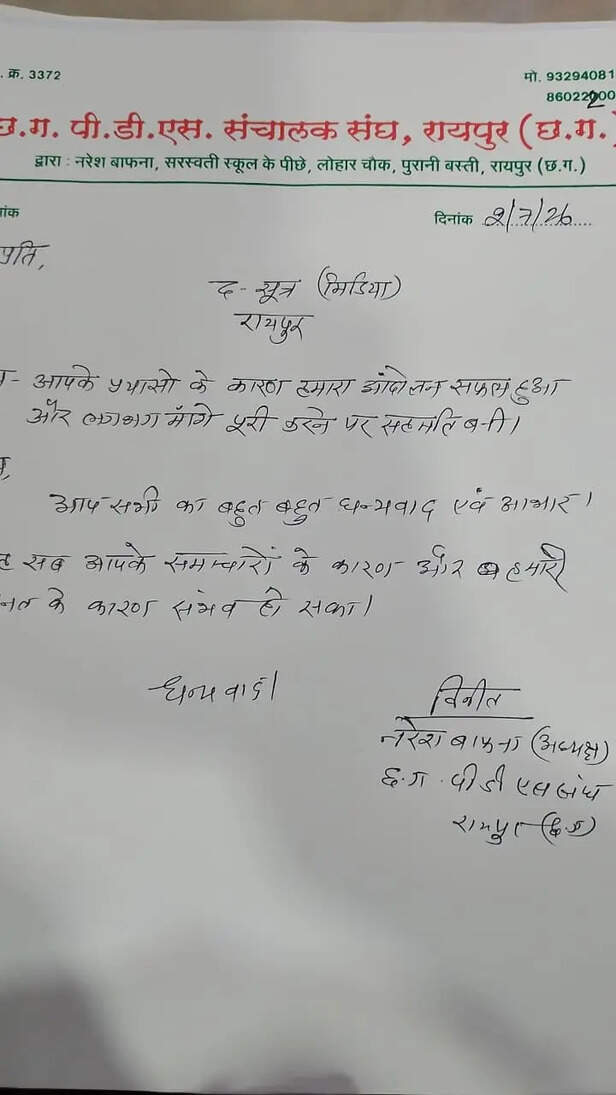 . क्र. 3372
मो. 93294081
8602200
छ.ग. पी.डी.एस. संचालक संघ, रायपुर (छ.ग.)
द्वारा : नरेश बाफना, सरस्वती स्कूल के पीछे, लोहार चौक, पुरानी बस्ती, रायपुर (छ.ग.)
ांक
दिनांक 2/7/26
प्रति,
द - सूत्र (मिडिया)
रायपुर
- आपके प्रयासो के कारण हमारा आंदोलन सफल हुआ
और लगभग माँगे पूरी करने पर सहमति बनी।
आप सभी का बहुत बहुत धन्यवाद एवं आभार।
सब आपके समाचारों के कारण और हमारी
नत के कारण संभव हो सका।
धन्यवाद।
विनीत
नरेश बाफना (अध्यक्ष)
छ.ग. पी डी एस संघ
रायपुर (छ.ग)